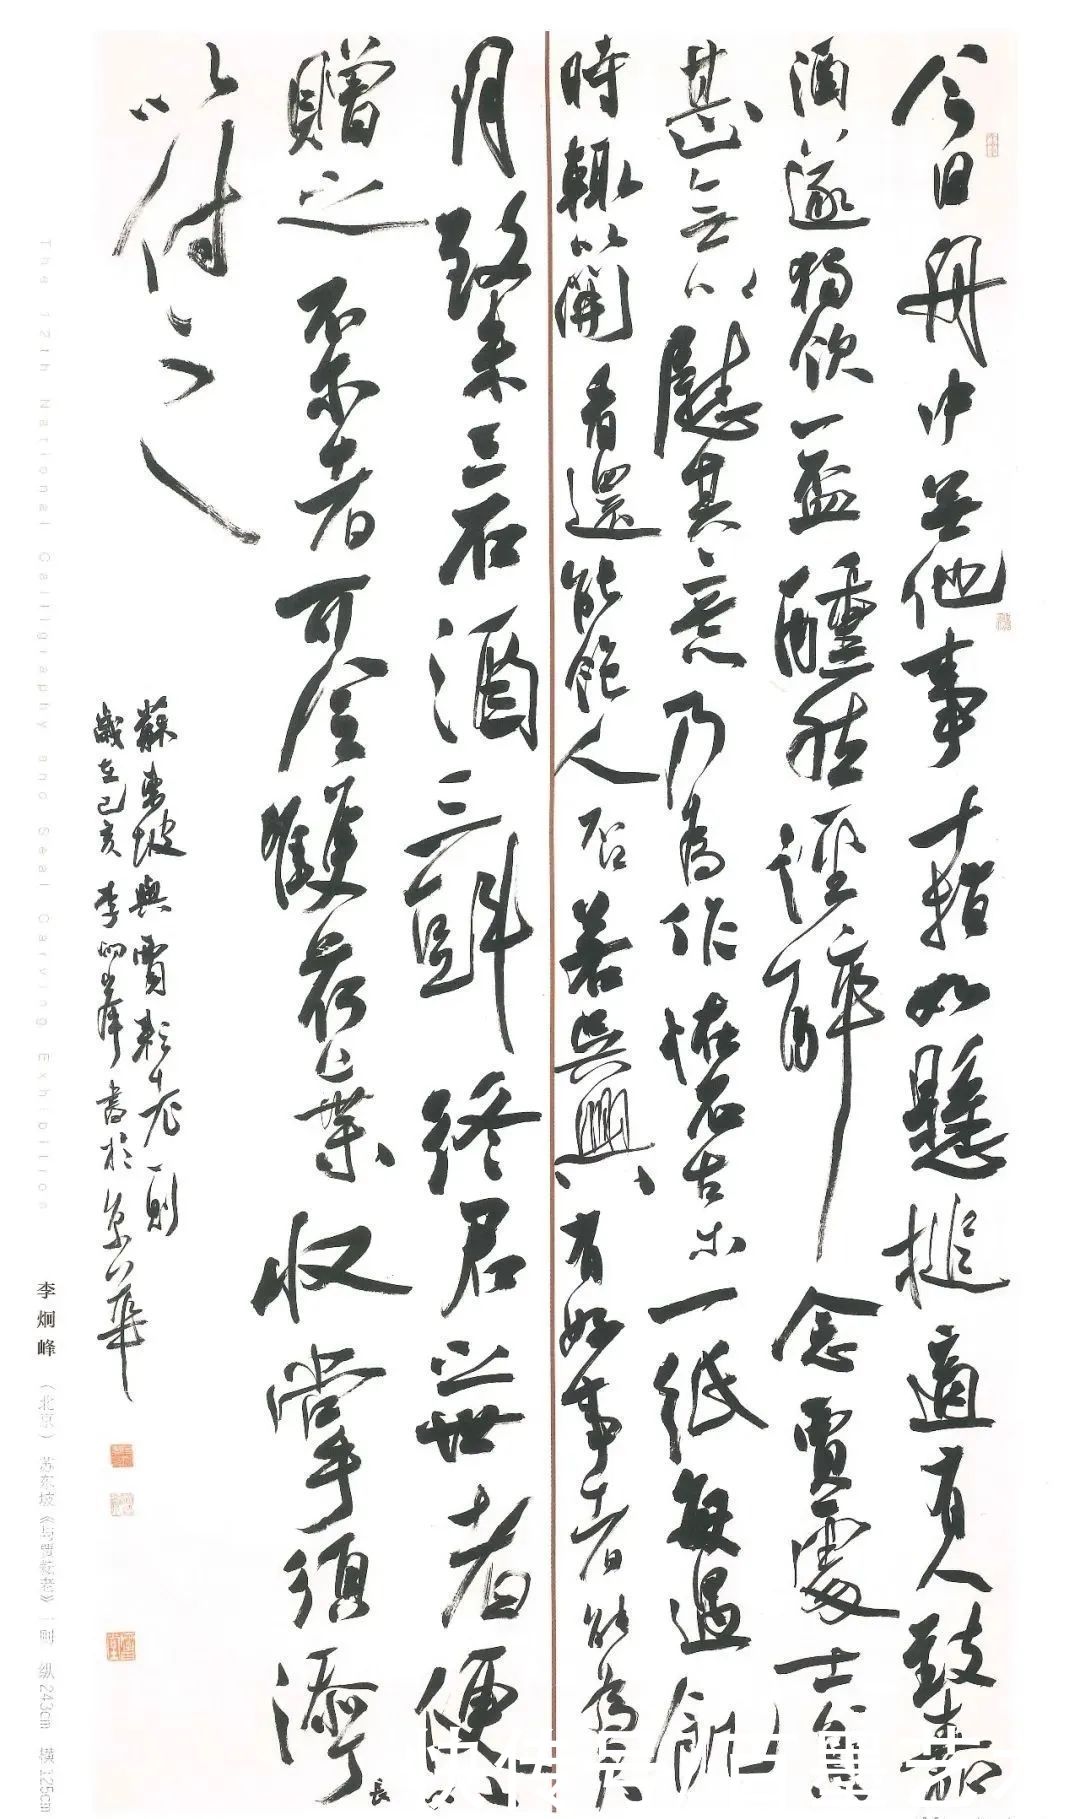 今日舟中無他事十指如懸槌適有人致嘉
酒遂獨飲一盃醺然徑醉念賈處士貧
甚無以慰其意乃為作怪石古木一紙每遇飢
時輒以開看還能飽人否若吳興有好事者能為君
月致米三石酒三斗終君之世者便以
贈之不爾者可令雙荷葉收掌須添丁長
以付之
蘇東坡與賈耘老一則
歲在己亥李炯峰書於京華
The 12th National Calligraphy and Seal Carving Exhibition
李炯峰（北京） 苏东坡《与贾耘老》一则 纵243cm 横125cm